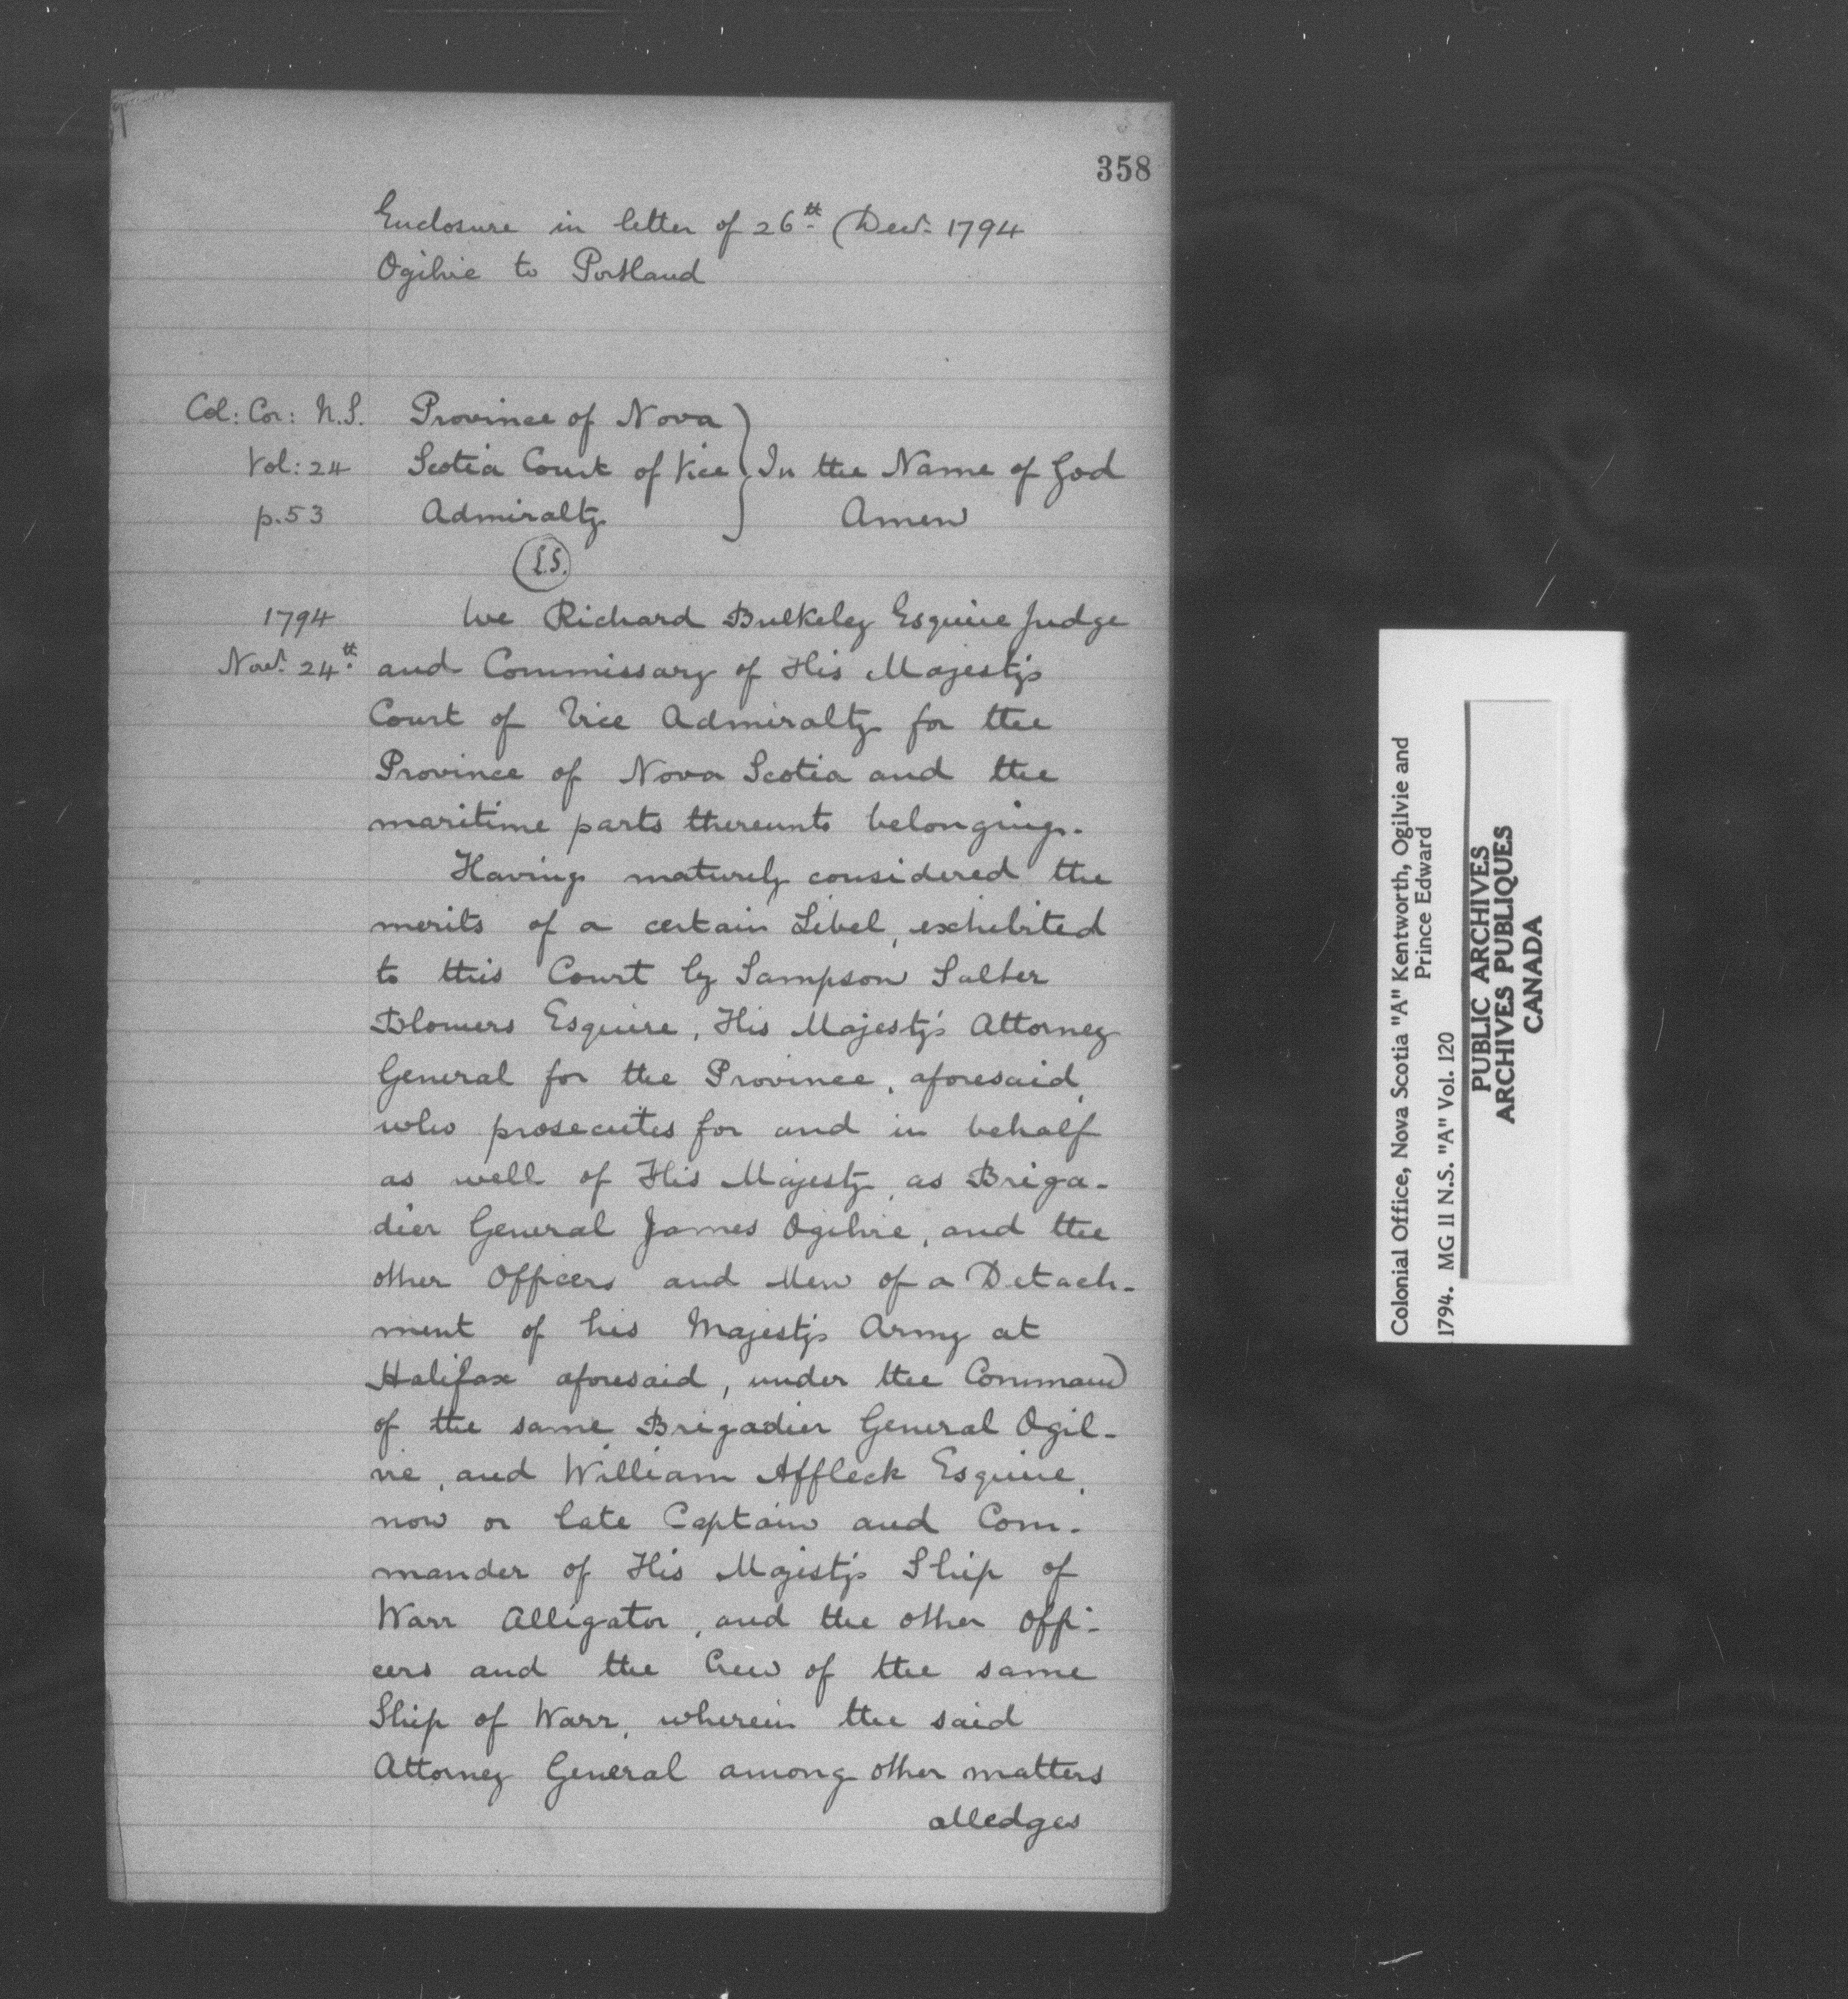 358
Enclosure in letter of 26th Decr. 1794
Ogilvie to Portland
Col: Cor: N.S.
Vol: 24
p.53
Province of Nova
Scotia Court of Vice
Admiralty
In the Name of God
Amen
L.S.
1794
Novr. 24th.
We Richard Bulkeley Esquire Judge
and Commissary of His Majesty's
Court of Vice Admiralty for the
Province of Nova Scotia and the
maritime parts thereunto belonging.
Having maturely considered the
merits of a certain Libel, exhibited
to this Court by Sampson Salter
Blowers Esquire, His Majesty's Attorney
General for the Province, aforesaid,
who prosecutes for and in behalf
as well of His Majesty, as Briga-
dier General James Ogilvie, and the
other Officers and Men of a Detach-
ment of his Majesty's Army at
Halifax aforesaid, under the Command
of the same Brigadier General Ogil-
vie, and William Affleck Esquire,
now or late Captain and Com-
mander of His Majesty's Ship of
Warr Alligator, and the other Offi-
cers and the Crew of the same
Ship of Warr, wherein the said
Attorney General among other matters
alledges
Colonial Office, Nova Scotia "A" Kentworth, Ogilvie and
Prince Edward
1794. MG 11 N.S. "A" Vol. 120
PUBLIC ARCHIVES
ARCHIVES PUBLIQUES
CANADA